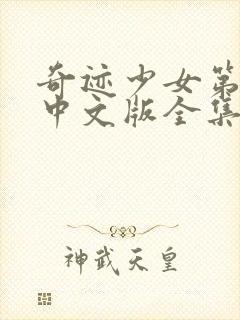 奇迹少女第
中文版全集
神武天皇